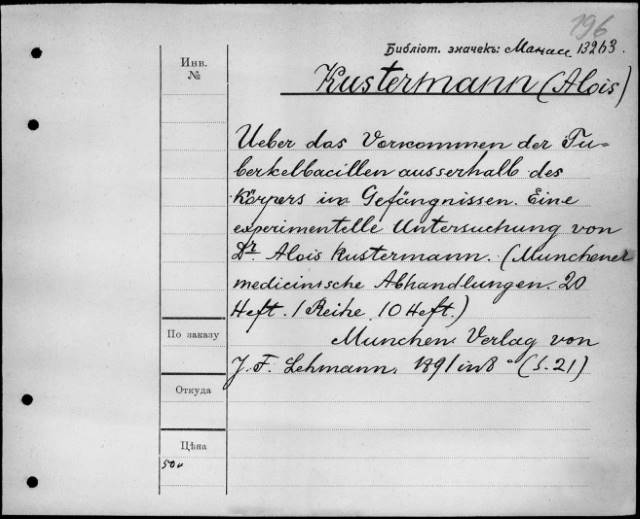 196
Библіот. значекъ: Манасс 13263.
Инв.
№
Kustermann (Alois)
Ueber das Vorkommen der Tu-
berkelbacillen ausserhalb des
Körpers in Gefängnissen. Eine
experimentelle Untersuchung von
Dr. Alois Kustermann. (Munchener
medicinische Abhandlungen. 20
Heft. 1 Reihe 10 Heft.)
По заказу
Munchen Verlag von
J. F. Lehmann. 1891 in 8° (S. 21)
Откуда
Цѣна
50